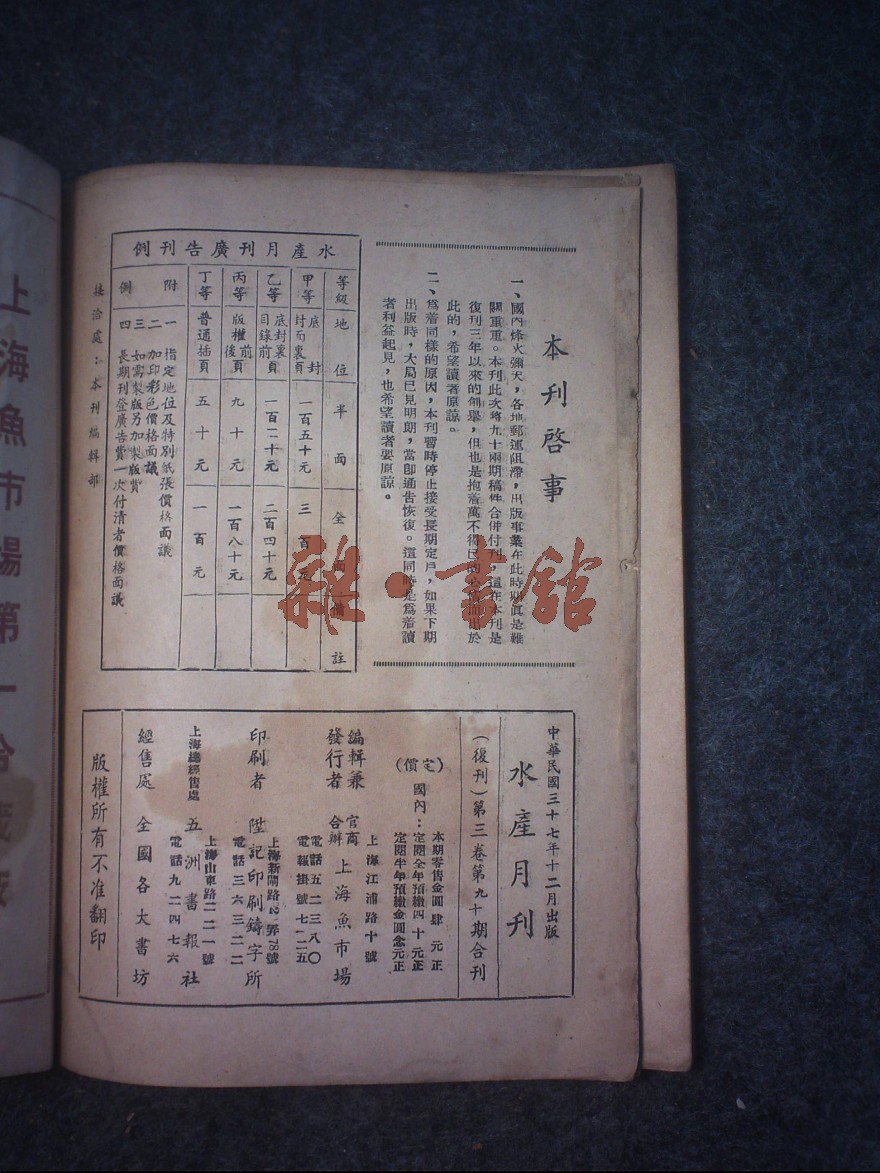 本刊啓事
一、國內烽火彌天，各地郵運阻滯，出版事業在此時期眞是難
關重重。本刊此次將九十兩期稿件合併付刊，這在本刊是
復刊三年以來的創舉，但也是抱着萬不得已的心情而出於
此的，希望讀者原諒。
二、爲着同樣的原因，本刊暫時停止接受長期定戶，如果下期
出版時，大局已見明朗，當卽通告恢復。這同時是爲着讀
者利益起見，也希望讀者要原諒。
水產月刊廣告刊例
等級 地位 半面 全面 備註
甲等 底封 封面裏頁 一百五十元 三百元
乙等 底封裏頁 目錄前頁 一百二十元 二百四十元
丙等 版權前頁 後頁 九十元 一百八十元
丁等 普通插頁 五十元 一百元
附例
一 指定地位及特別紙張價格面議
二 加印彩色價格面議
三 如需製版另加製版費
四 長期刊登廣告費一次付清者價格面議
接洽處：本刊編輯部
中華民國三十七年十二月出版
水產月刊
（復刊）第三卷第九十期合刊
（定價）
本期零售金圓肆元正
國內：定閱全年預繳四十元正
定閱半年預繳金圓念元正
編輯兼發行者 官商合辦 上海魚市場
上海江浦路十號
電話五二三八〇
電報掛號七一二五
印刷者 陞記印刷鑄字所
上海新閘路2弄78號
電話三六三二二
上海總經售處 五洲書報社
上海山東路二二一號
電話九二四七六
經售處 全國各大書坊
版權所有不准翻印
上海魚市場第一
雜·書館